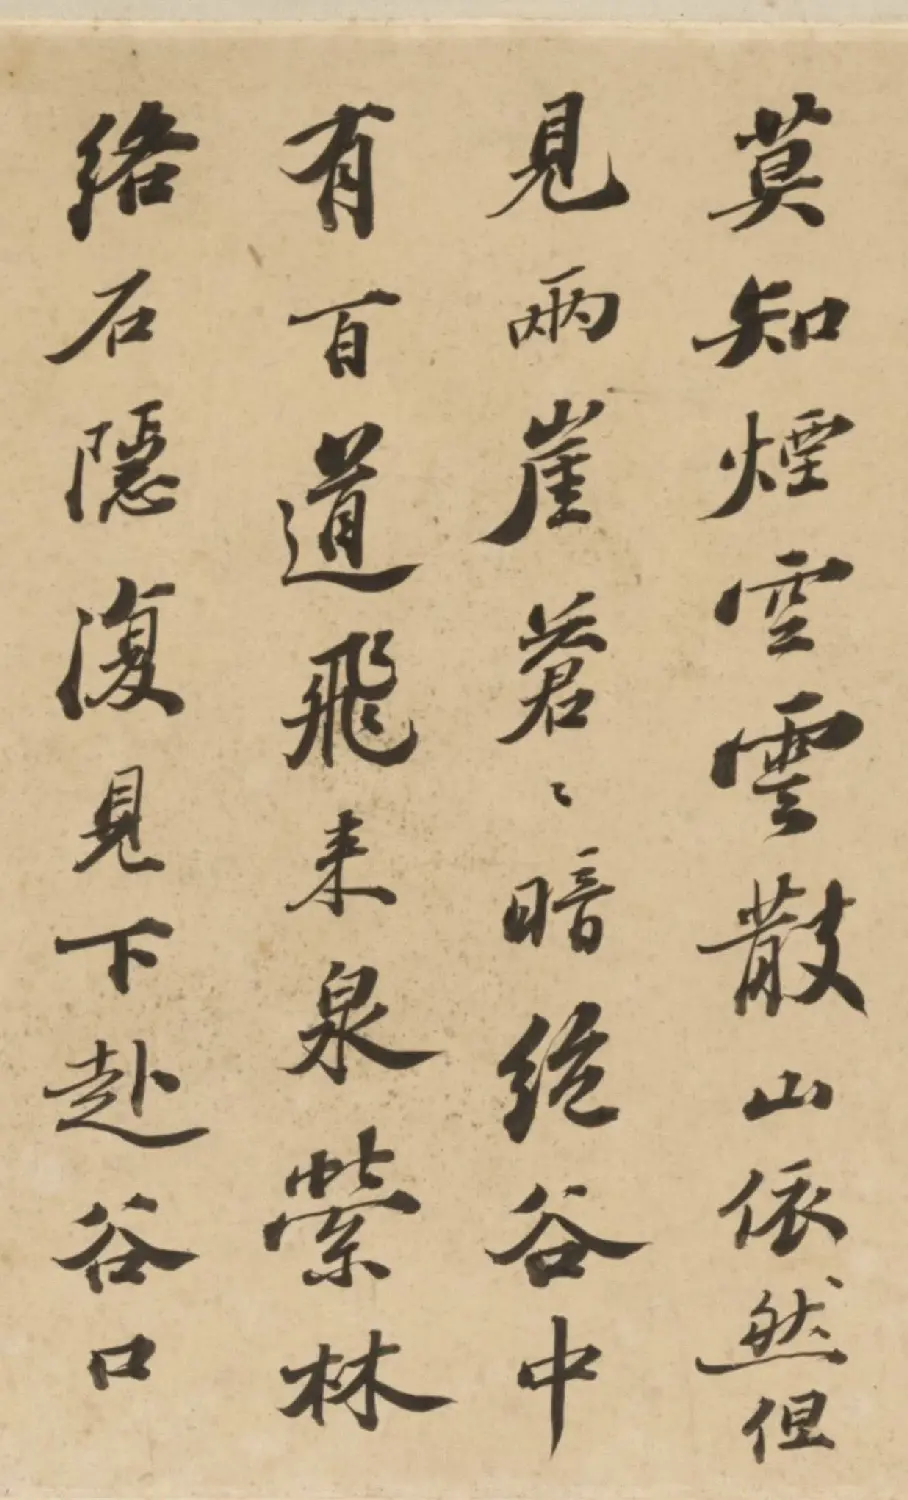 莫知煙空雲散山依然但
見兩崖蒼〻暗絶谷中
有百道飛来泉縈林
絡石隱復見下赴谷口